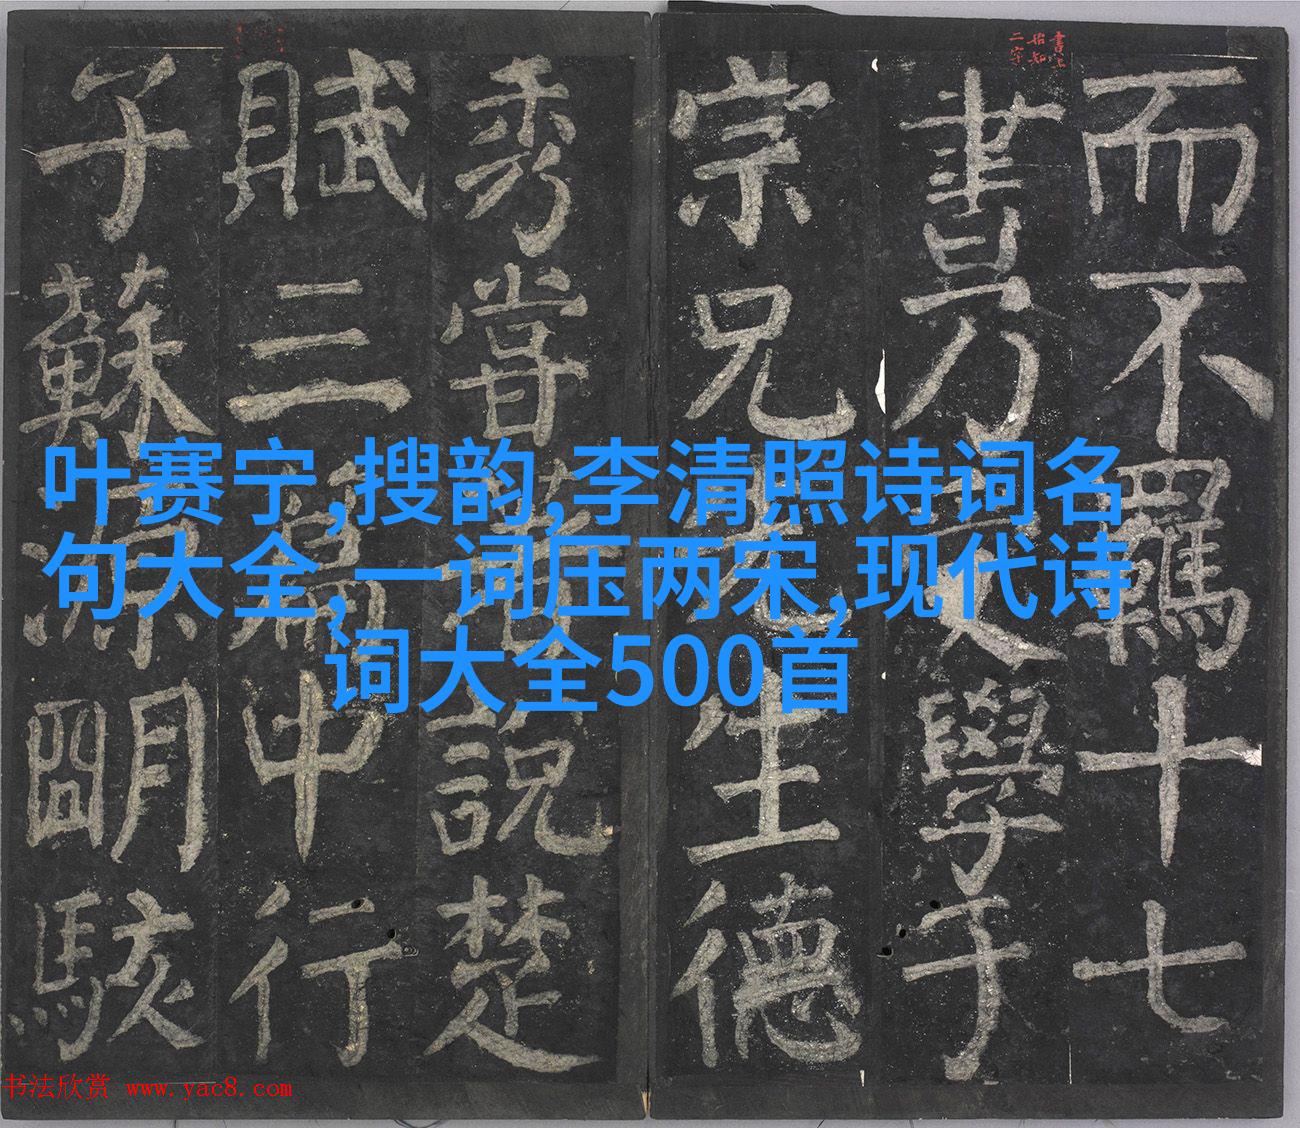 而不羈十七
書乃受學于
宗兄先生德
秀嘗著說楚
賦三篇中行
子蘇源明駭
書上
始知
二字
叶赛宁,搜韵,李清照诗词名
句大全,一词压两宋,现代诗
词大全500首
书法欣赏 www.yac8.com